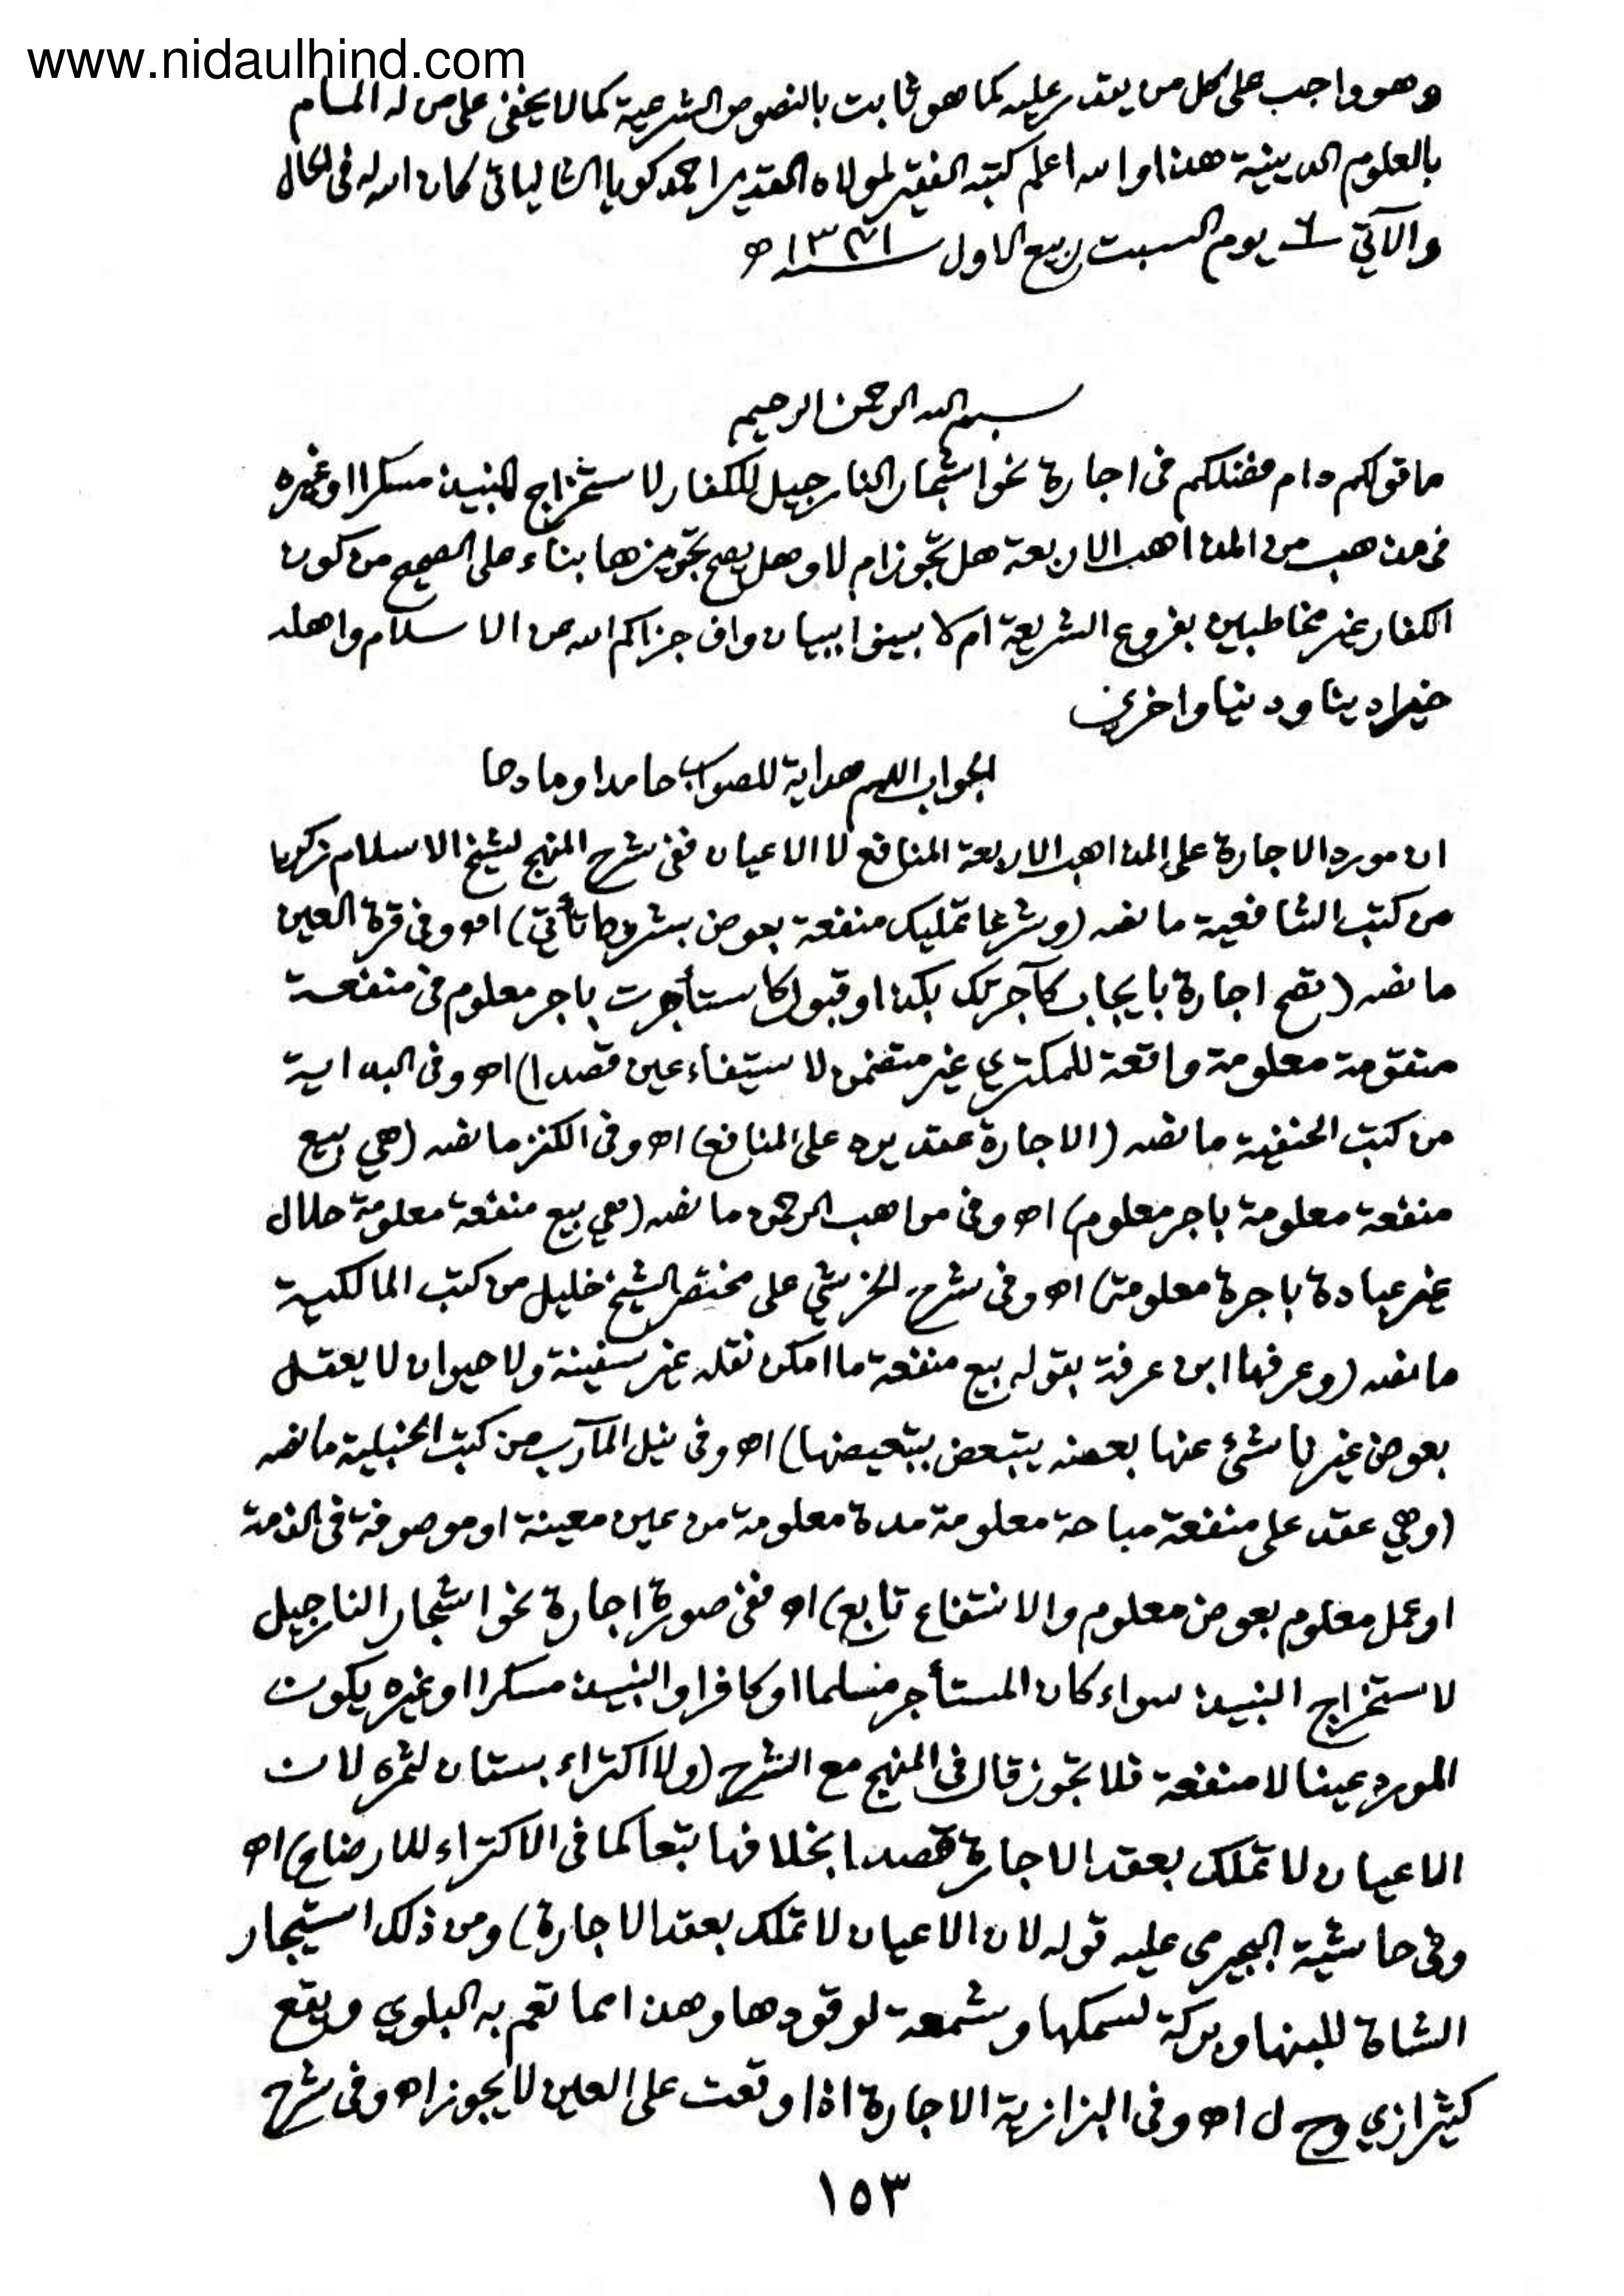 www.nidaulhind.com
وهو واجب على كل من يقدر عليه كما هو ثابت بالنصوص الشرعية كما لا يخفى على من له المسام
بالعلوم الدينية هذا والله اعلم كتبه الفقير لمولاه القدير احمد كويا الشالياتى كان الله له فى الحال
والآتي ٦ يوم السبت ربيع الاول ١٣٤١ ه
بسم الله الرحمن الرحيم
ما قولكم دام فضلكم فى اجارة نحو اشجار النارجيل للكفار لاستخراج النبيذ مسكرا او غيره
فى مذهب من المذاهب الاربعة هل تجوز ام لا وهل يصح تجويزها بناء على الصحيح من كون
الكفار غير مخاطبين بفروع الشريعة ام لا بينوا ببيان واف جزاكم الله عن الاسلام واهله
خيرا دينا ودنيا واخرى
الجواب اللهم هداية للصواب حامدا ومادحا
ان مورد الاجارة على المذاهب الاربعة المنافع لا الاعيان ففى شرح المنهج لشيخ الاسلام زكريا
من كتب الشافعية ما نصه (وشرعا تمليك منفعة بعوض بشروط تأتي) اه وفى قرة العين
ما نصه (تصح اجارة بايجاب كآجرتك بكذا وقبول كاستأجرت باجر معلوم فى منفعة
متقومة معلومة واقعة للمكتري غير متضمن لاستيفاء عين قصدا) اه وفى البداية
من كتب الحنفية ما نصه (الاجارة عقد يرد على المنافع) اه وفى الكنز ما نصه (هي بيع
منفعة معلومة باجر معلوم) اه وفى مواهب الرحمن ما نصه (هي بيع منفعة معلومة حلال
غير عبادة باجرة معلومة) اه وفى شرح الخرشي على مختصر الشيخ خليل من كتب المالكية
ما نصه (وعرفها ابن عرفة بقوله بيع منفعة ما امكن نقله غير سفينة ولا حيوان لا يعقل
بعوض غير ناشئ عنها بعضه يتبعض بتبعيضها) اه وفى نيل المآرب من كتب الحنبلية ما نصه
(وهي عقد على منفعة مباحة معلومة مدة معلومة من عين معينة او موصوفة فى الذمة
او عمل معلوم بعوض معلوم والانتفاع تابع) اه ففى صورة اجارة نحو اشجار النارجيل
لاستخراج النبيذ سواء كان المستأجر مسلما او كافرا والنبيذ مسكرا او غيره يكون
المورد عينا لا منفعة فلا تجوز قال فى المنهج مع الشرح (ولا اكتراء بستان لثمره لان
الاعيان لا تملك بعقد الاجارة قصدا بخلافها تبعا كما فى الاكتراء للارضاع) اه
وفى حاشية البجيرمى عليه قوله لان الاعيان لا تملك بعقد الاجارة) ومن ذلك استيجار
الشاة للبنها وبركة لسمكها وشمعة لوقودها وهذا مما تعم به البلوي ويقع
كثيرا زي وح ل اه وفى البزازية الاجارة اذا وقعت على العين لا يجوز اه وفى شرح
١٥٣